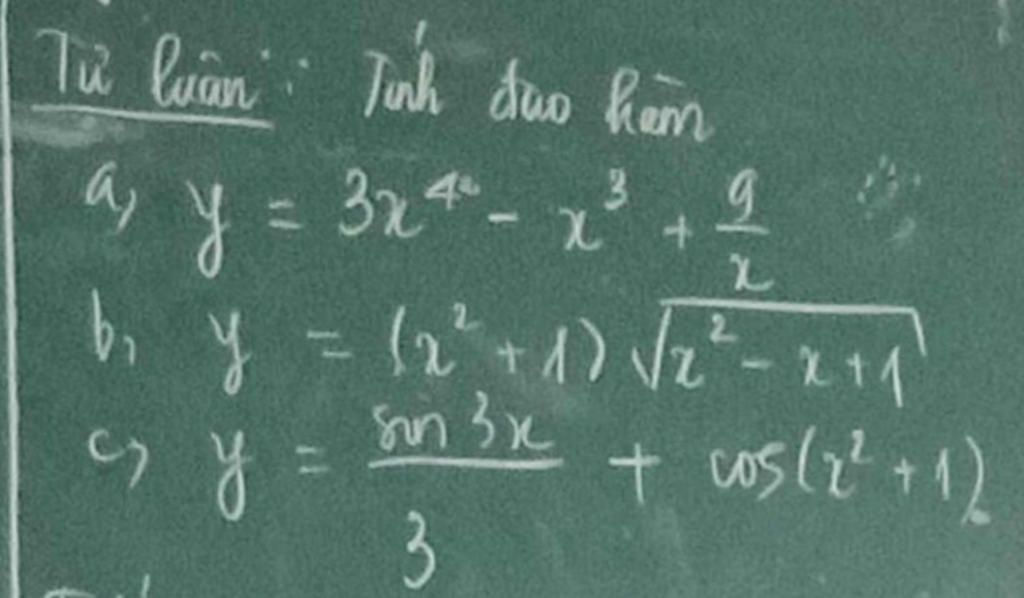 Tự luận: Tính đạo hàm
a, y = 3x⁴ - x³ + 9/x
b, y = (x² + 1) √(x² - x + 1)
c, y = sin 3x / 3 + cos(x² + 1)